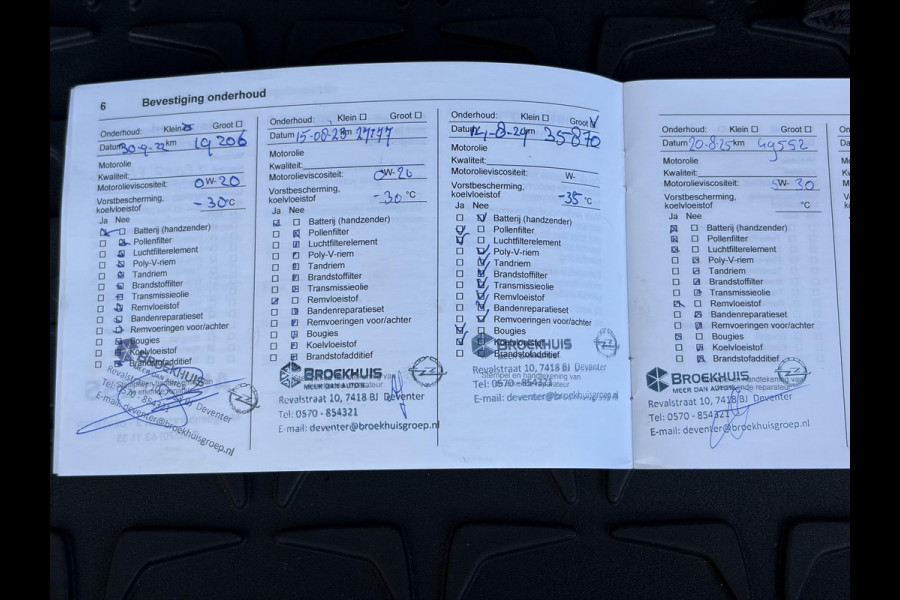 6 Bevestiging onderhoud
Onderhoud: Klein Groot
Datum 30-9-22 km 19206
Motorolie
Kwaliteit:
Motorolieviscositeit: 0W-20
Vorstbescherming,
koelvloeistof -30°C
Ja Nee
Batterij (handzender)
Pollenfilter
Luchtfilterelement
Poly-V-riem
Tandriem
Brandstoffilter
Transmissieolie
Remvloeistof
Bandenreparatieset
Remvoeringen voor/achter
Bougies
Koelvloeistof
Brandstofadditief
BROEKHUIS
Revalstraat 10, 7418 BJ Deventer
Tel: 0570 - 854321
E-mail: deventer@broekhuisgroep.nl
Onderhoud: Klein Groot
Datum 15-08-23 km 27177
Motorolie
Kwaliteit:
Motorolieviscositeit: 0W-20
Vorstbescherming,
koelvloeistof -30 °C
Ja Nee
Batterij (handzender)
Pollenfilter
Luchtfilterelement
Poly-V-riem
Tandriem
Brandstoffilter
Transmissieolie
Remvloeistof
Bandenreparatieset
Remvoeringen voor/achter
Bougies
Koelvloeistof
Brandstofadditief
BROEKHUIS
MEER DAN AUTO'S
Revalstraat 10, 7418 BJ Deventer
Tel: 0570 - 854321
E-mail: deventer@broekhuisgroep.nl
Onderhoud: Klein Groot
Datum 14-8-24 km 35870
Motorolie
Kwaliteit:
Motorolieviscositeit: W-
Vorstbescherming,
koelvloeistof -35 °C
Ja Nee
Batterij (handzender)
Pollenfilter
Luchtfilterelement
Poly-V-riem
Tandriem
Brandstoffilter
Transmissieolie
Remvloeistof
Bandenreparatieset
Remvoeringen voor/achter
Bougies
Koelvloeistof
Brandstofadditief
BROEKHUIS
Stempel en handtekening van
Revalstraat 10, 7418 BJ Deventer
Tel: 0570 - 854321
E-mail: deventer@broekhuisgroep.nl
Onderhoud: Klein Groot
Datum 20-8-25 km 49552
Motorolie
Kwaliteit:
Motorolieviscositeit: 5W-30
Vorstbescherming,
koelvloeistof °C
Ja Nee
Batterij (handzender)
Pollenfilter
Luchtfilterelement
Poly-V-riem
Tandriem
Brandstoffilter
Transmissieolie
Remvloeistof
Bandenreparatieset
Remvoeringen voor/achter
Bougies
Koelvloeistof
Brandstofadditief
BROEKHUIS
MEER DAN AUTO'S
Revalstraat 10, 7418 BJ Deventer
Tel: 0570 - 854321
E-mail: deventer@broekhuisgroep.nl